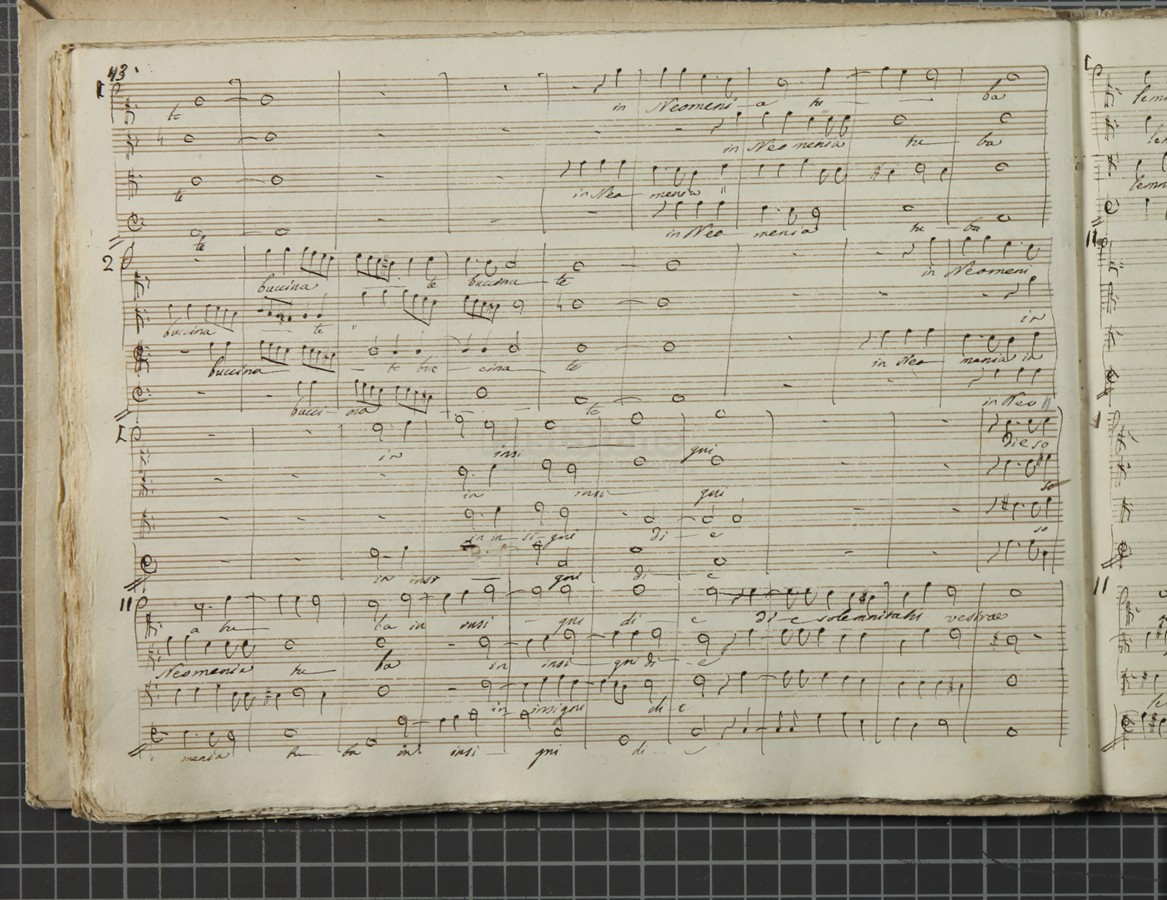 43
1
te
in Neomeni - a tu - ba
in Neomenia tu - ba
te
in Neo - menia "
in Neo - menia tu - ba
te
2
buccina te buccina - te
in Neomeni
buccina - te "
in
buccina - te buc - cina - te
in Neo - menia in
bucci - na te
in Neo
in insi gni
die so
in insi gni
so
in in - si - gni di - e
so
in insi - gni di - e
11
a tu - ba in insi - gni di - e di - e solemnitatis vestrae
Neomenia tu - ba in insi - gni di - e
in - insigni di e
menia tu - ba in insi - gni di - e
1
lemn
11